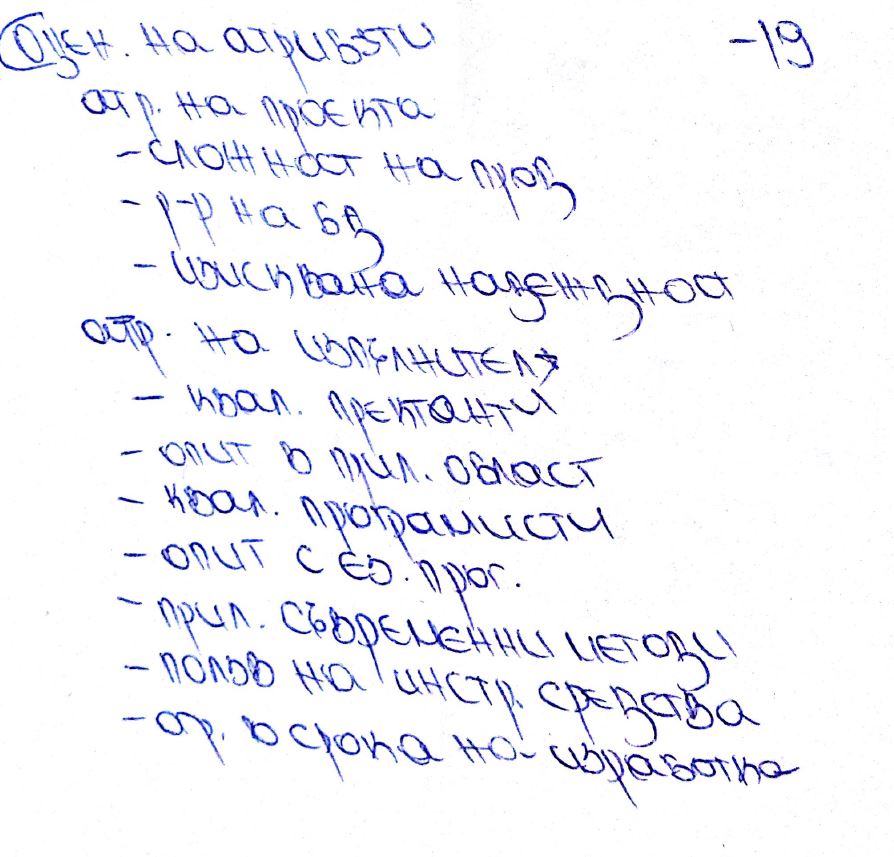 Оцен. на атрибути -19
атр. на проекта
- сложност на прод
- р-р на БД
- изисквана надеждност
атр. на изпълнителя
- квал. пректанти
- опит в прил. област
- квал. програмисти
- опит с ез. прог.
- прил. съвременни методи
- ползв на инстр. средства
- огр. в срока на изработка